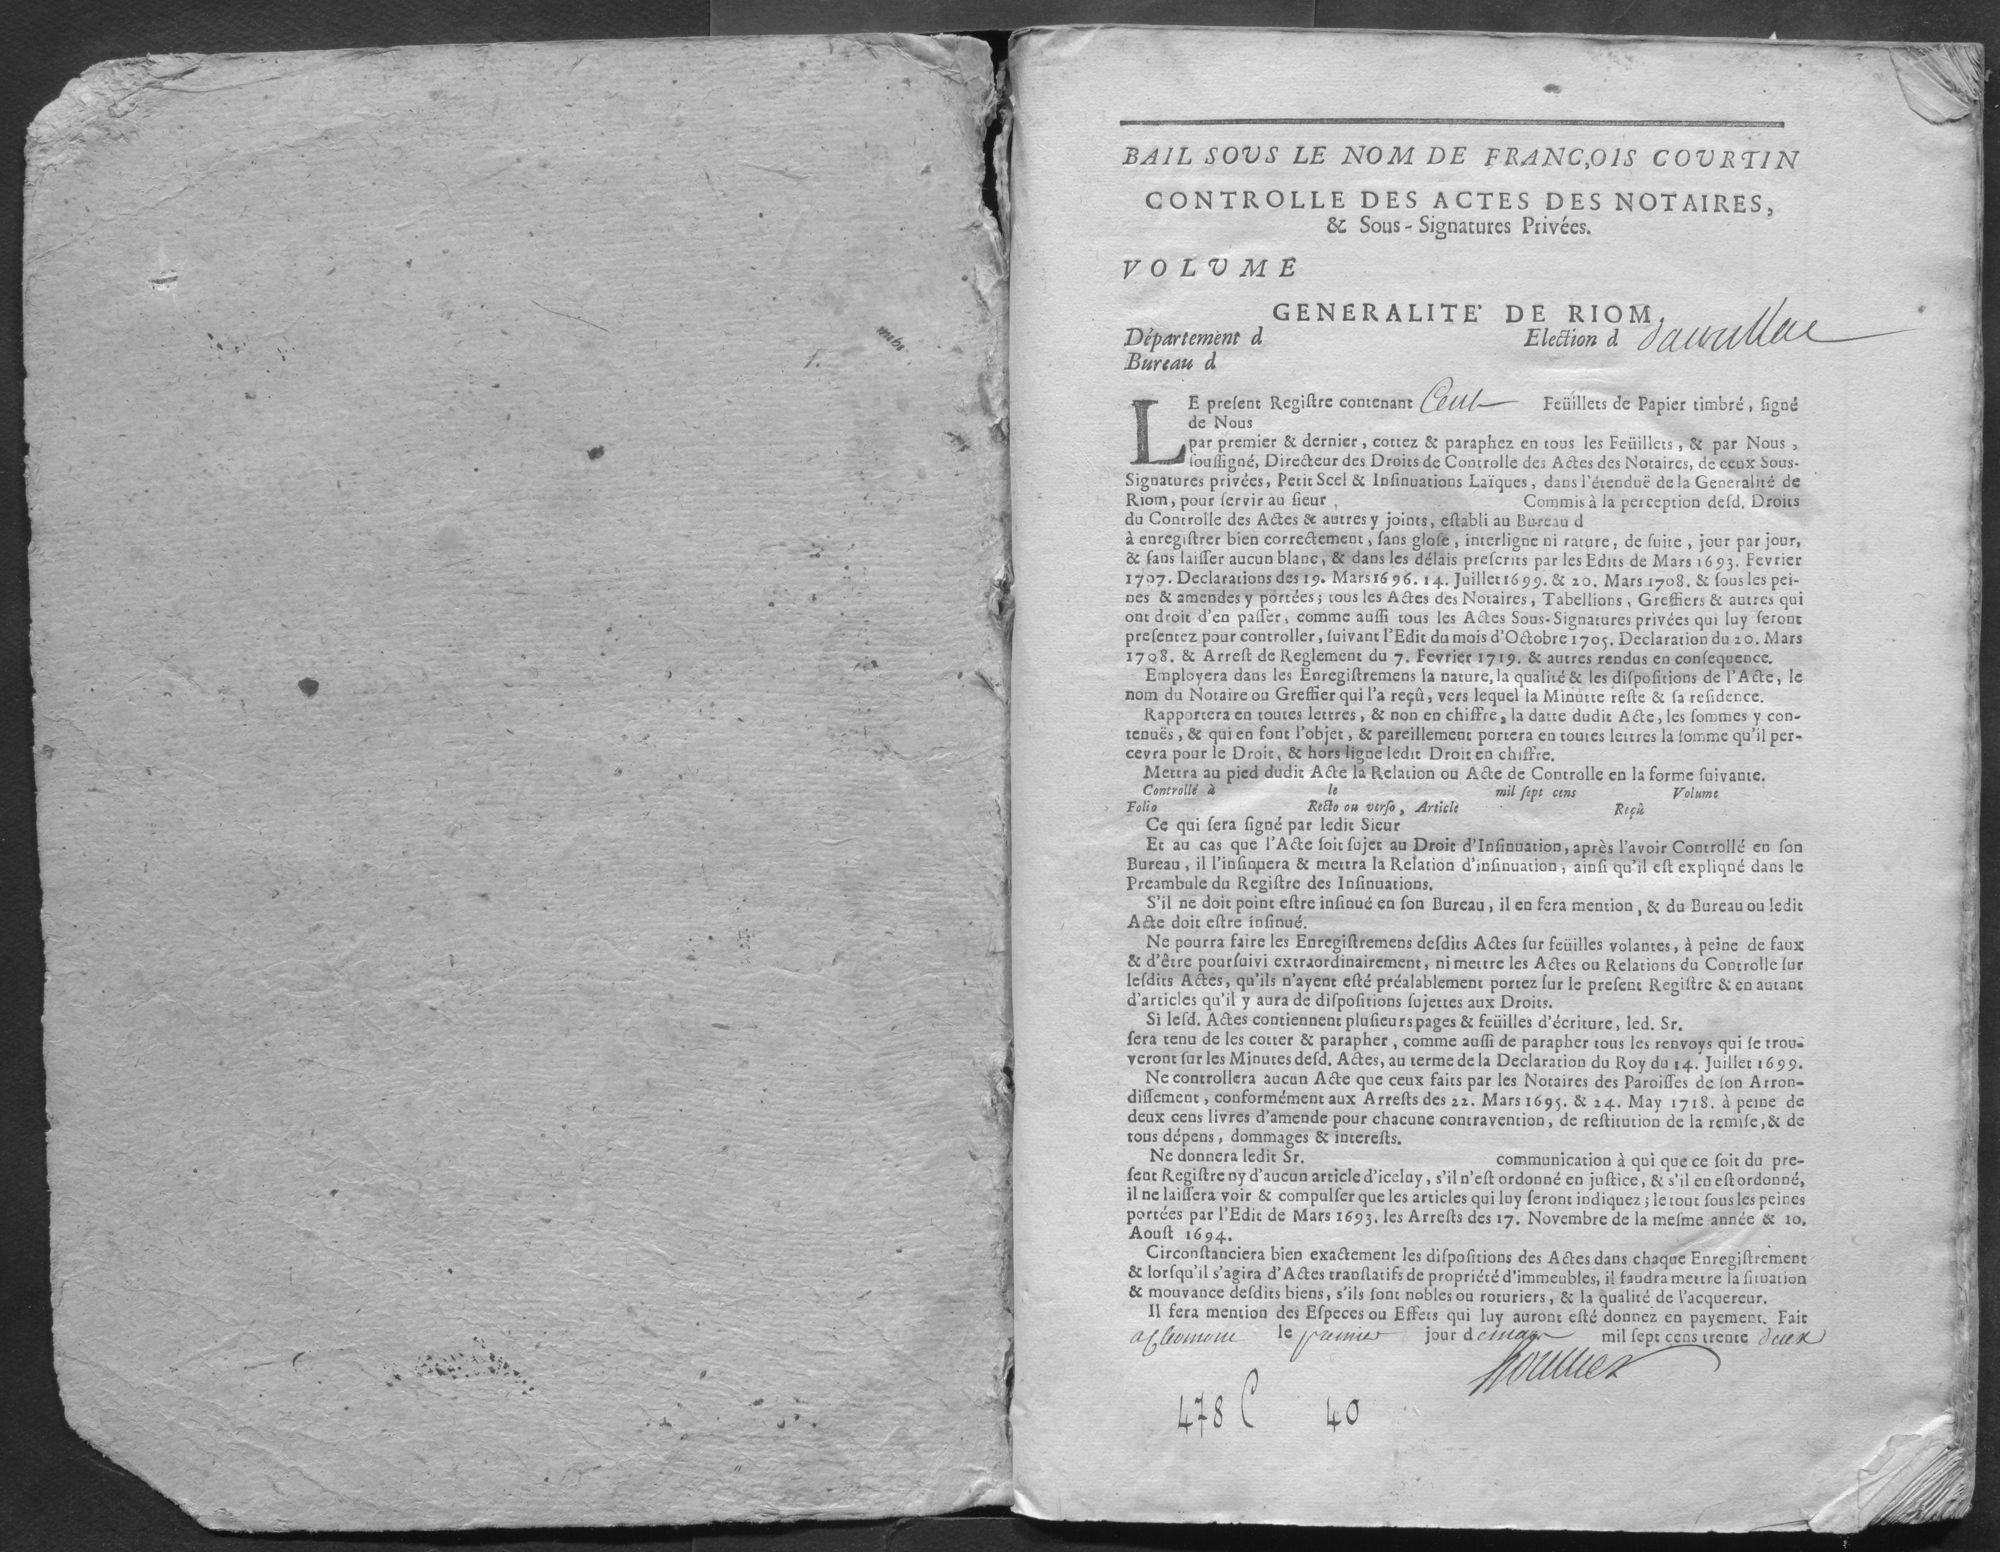 BAIL SOUS LE NOM DE FRANÇOIS COURTIN
CONTROLLE DES ACTES DES NOTAIRES,
& Sous-Signatures Privées.
VOLUME
GENERALITE' DE RIOM,
Département d Election d daurillac
Bureau d
LE preſent Regiſtre contenant Cent Feüillets de Papier timbré, ſigné
de Nous
par premier & dernier, cottez & paraphez en tous les Feüillets, & par Nous,
ſouſſigné, Directeur des Droits de Controlle des Actes des Notaires, de ceux Sous-
Signatures privées, Petit Scel & Inſinuations Laïques, dans l'étenduë de la Generalité de
Riom, pour ſervir au ſieur, Commis à la perception deſd. Droits
du Controlle des Actes & autres y joints, eſtabli au Bureau d
à enregiſtrer bien correctement, ſans gloſe, interligne ni rature, de ſuite, jour par jour,
& ſans laiſſer aucun blanc, & dans les délais preſcrits par les Edits de Mars 1693. Fevrier
1707. Declarations des 19. Mars 1696. 14. Juillet 1699. & 20. Mars 1708. & ſous les pei-
nes & amendes y portées; tous les Actes des Notaires, Tabellions, Greffiers & autres qui
ont droit d'en paſſer, comme auſſi tous les Actes Sous-Signatures privées qui luy ſeront
preſentez pour controller, ſuivant l'Edit du mois d'Octobre 1705. Declaration du 20. Mars
1708. & Arreſt de Reglement du 7. Fevrier 1719. & autres rendus en conſequence.
Employera dans les Enregiſtremens la nature, la qualité & les diſpoſitions de l'Acte, le
nom du Notaire ou Greffier qui l'a reçû, vers lequel la Minûtte reſte & ſa reſidence.
Rapportera en toutes lettres, & non en chiffre, la datte dudit Acte, les ſommes y con-
tenuës, & qui en font l'objet, & pareillement portera en toutes lettres la ſomme qu'il per-
cevra pour le Droit, & hors ligne ledit Droit en chiffre.
Mettra au pied dudit Acte la Relation ou Acte de Controlle en la forme ſuivante.
Controllé à le mil ſept cens Volume
Folio Recto ou verſo, Article Reçû
Ce qui ſera ſigné par ledit Sieur
Et au cas que l'Acte ſoit ſujet au Droit d'Inſinuation, après l'avoir Controllé en ſon
Bureau, il l'inſinuera & mettra la Relation d'inſinuation, ainſi qu'il eſt expliqué dans le
Preambule du Regiſtre des Inſinuations.
S'il ne doit point eſtre inſinué en ſon Bureau, il en fera mention, & du Bureau ou ledit
Acte doit eſtre inſinué.
Ne pourra faire les Enregiſtremens deſdits Actes ſur feüilles volantes, à peine de faux
& d'être pourſuivi extraordinairement, ni mettre les Actes ou Relations du Controlle ſur
leſdits Actes, qu'ils n'ayent eſté préalablement portez ſur le preſent Regiſtre & en autant
d'articles qu'il y aura de diſpoſitions ſujettes aux Droits.
Si leſd. Actes contiennent pluſieurs pages & feüilles d'écriture, led. Sr.
ſera tenu de les cotter & parapher, comme auſſi de parapher tous les renvoys qui ſe trou-
veront ſur les Minutes deſd. Actes, au terme de la Declaration du Roy du 14. Juillet 1699.
Ne controllera aucun Acte que ceux faits par les Notaires des Paroiſſes de ſon Arron-
diſſement, conformément aux Arreſts des 22. Mars 1695. & 24. May 1718. à peine de
deux cens livres d'amende pour chacune contravention, de reſtitution de la remiſe, & de
tous dépens, dommages & intereſts.
Ne donnera ledit Sr. communication à qui que ce ſoit du pre-
ſent Regiſtre ny d'aucun article d'iceluy, s'il n'eſt ordonné en juſtice, & s'il en eſt ordonné,
il ne laiſſera voir & compulſer que les articles qui luy ſeront indiquez; le tout ſous les peines
portées par l'Edit de Mars 1693. les Arreſts des 17. Novembre de la meſme année & 10.
Aouſt 1694.
Circonſtanciera bien exactement les diſpoſitions des Actes dans chaque Enregiſtrement
& lorſqu'il s'agira d'Actes tranſlatifs de propriété d'immeubles, il faudra mettre la ſituation
& mouvance deſdits biens, s'ils ſont nobles ou roturiers, & la qualité de l'acquereur.
Il fera mention des Eſpeces ou Effets qui luy auront eſté donnez en payement. Fait
le premier jour de mars mil ſept cens trente deux
478 C 40